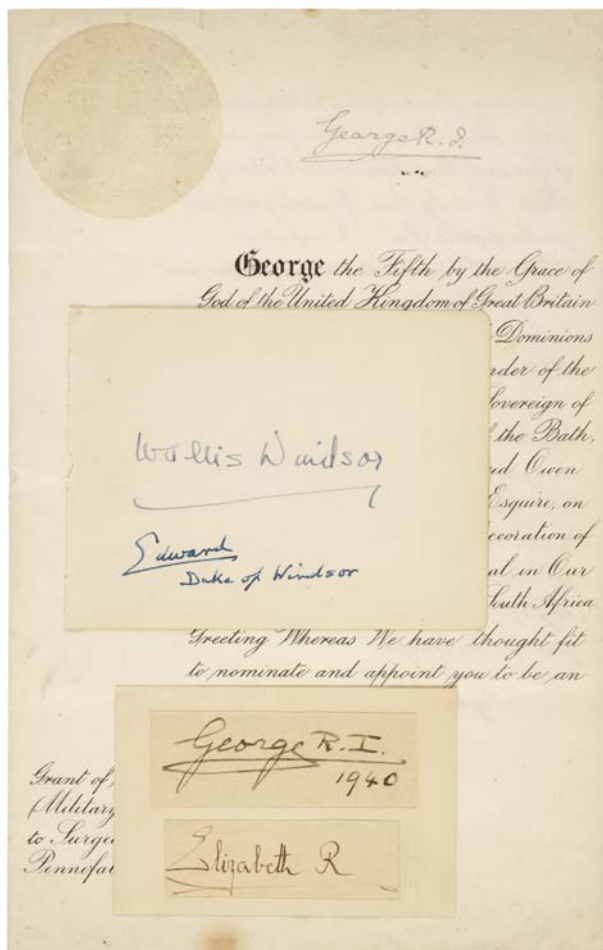 George R. I.
George the Fifth by the Grace of
God of the United Kingdom of Great Britain
Dominions
nder of the
Sovereign of
f the Bath,
red Owen
Esquire, on
ecoration of
al in Our
South Africa
Greeting Whereas We have thought fit
to nominate and appoint you to be an
Wallis Windsor
Edward
Duke of Windsor
George R. I.
1940
Elizabeth R
Grant of
(Military
to Surge
Pennefa